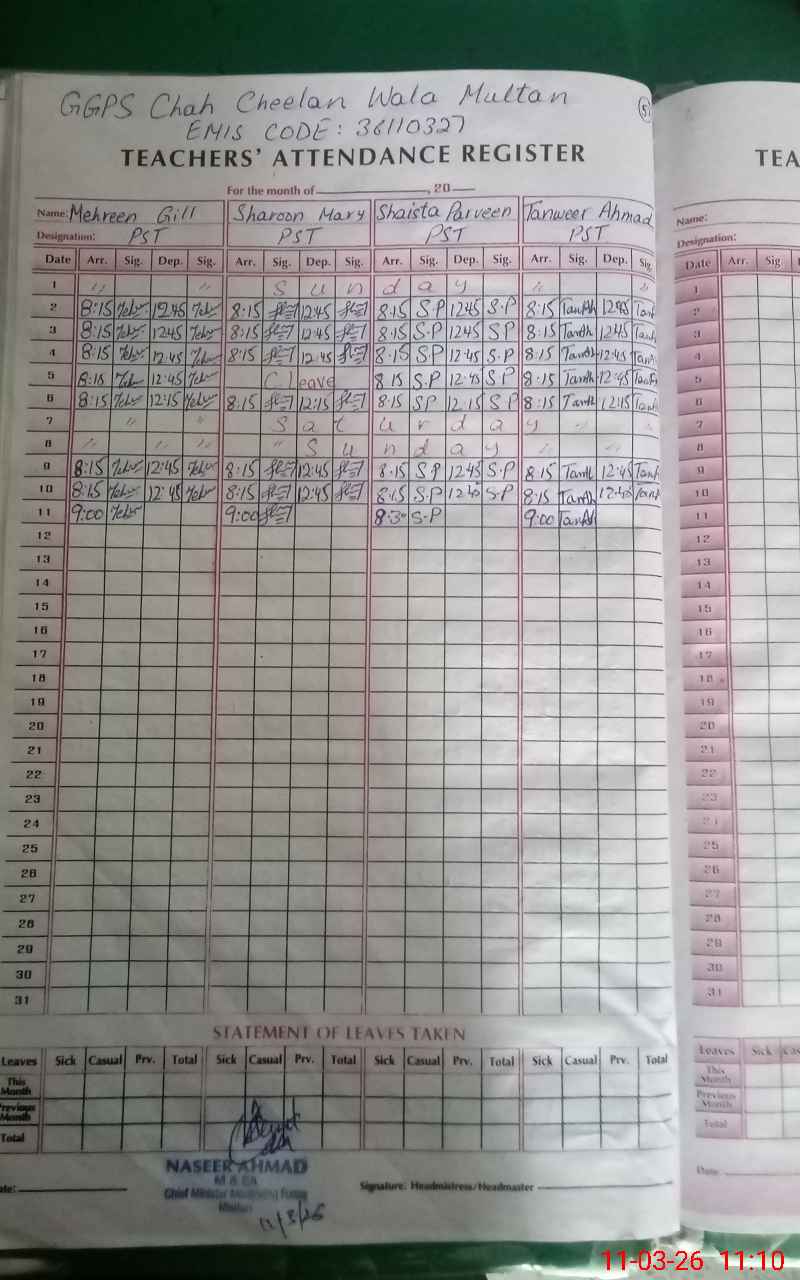 GGPS Chah Cheelan Wala Multan
5
EMIS CODE: 36110327
TEACHERS' ATTENDANCE REGISTER
For the month of , 20
Name: Mehreen Gill Sharoon Mary Shaista Parveen Tanweer Ahmad
Designation: PST PST PST PST
Date Arr. Sig. Dep. Sig. Arr. Sig. Dep. Sig. Arr. Sig. Dep. Sig. Arr. Sig. Dep. Sig.
1 " " S u n d a y " "
2 8:15 12:45 8:15 12:45 8:15 S.P 12:45 S.P 8:15 TanAh 12:45
3 8:15 12:45 8:15 12:45 8:15 S.P 12:45 SP 8:15 TanAh 12:45
4 8:15 12:45 8:15 12:45 8:15 S.P 12:45 S.P 8:15 TanAh 12:45
5 8:15 12:45 C.Leave 8:15 S.P 12:45 SP 8:15 TanAh 12:45
6 8:15 12:15 8:15 12:15 8:15 SP 12:15 SP 8:15 TanAh 12:15
7 " " S a t u r d a y "
8 " " " " S u n d a y " "
9 8:15 12:45 8:15 12:45 8:15 S.P 12:45 S.P 8:15 TanAh 12:45
10 8:15 12:45 8:15 12:45 8:15 S.P 12:45 S.P 8:15 TanAh 12:45
11 9:00 9:00 8:30 S-P 9:00 TanAh
12
13
14
15
16
17
18
19
20
21
22
23
24
25
26
27
28
29
30
31
STATEMENT OF LEAVES TAKEN
Leaves Sick Casual Prv. Total Sick Casual Prv. Total Sick Casual Prv. Total Sick Casual Prv. Total
This Month
Previous Month
Total
NASEER AHMAD
M & EA
Chief Minister Monitoring Force
Multan
11/3/26
Signature: Headmistress/Headmaster
TEA
Name:
Designation:
Date Arr. Sig
1
2
3
4
5
6
7
8
9
10
11
12
13
14
15
16
17
18
19
20
21
22
23
24
25
26
27
28
29
30
31
Leaves Sick
This Month
Previous Month
Total
Date
11-03-26 11:10